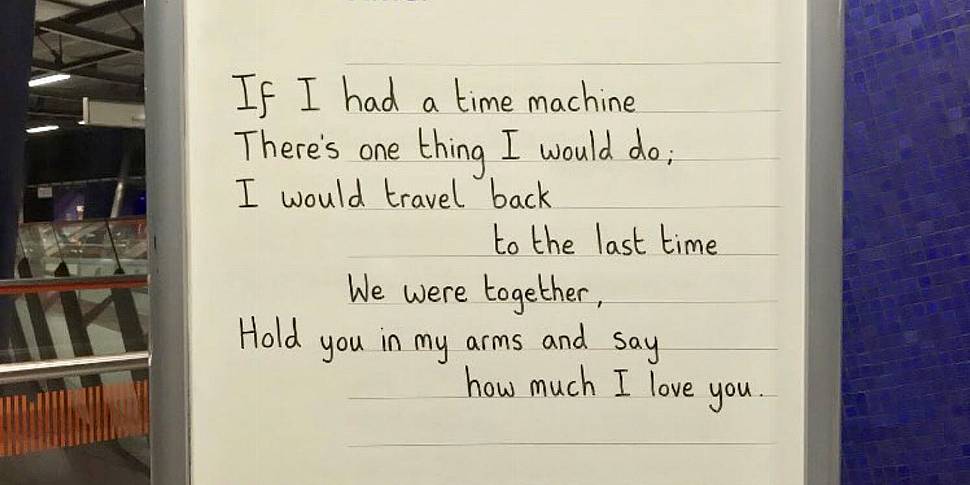 If I had a time machine
There's one thing I would do;
I would travel back
to the last time
We were together,
Hold you in my arms and say
how much I love you.